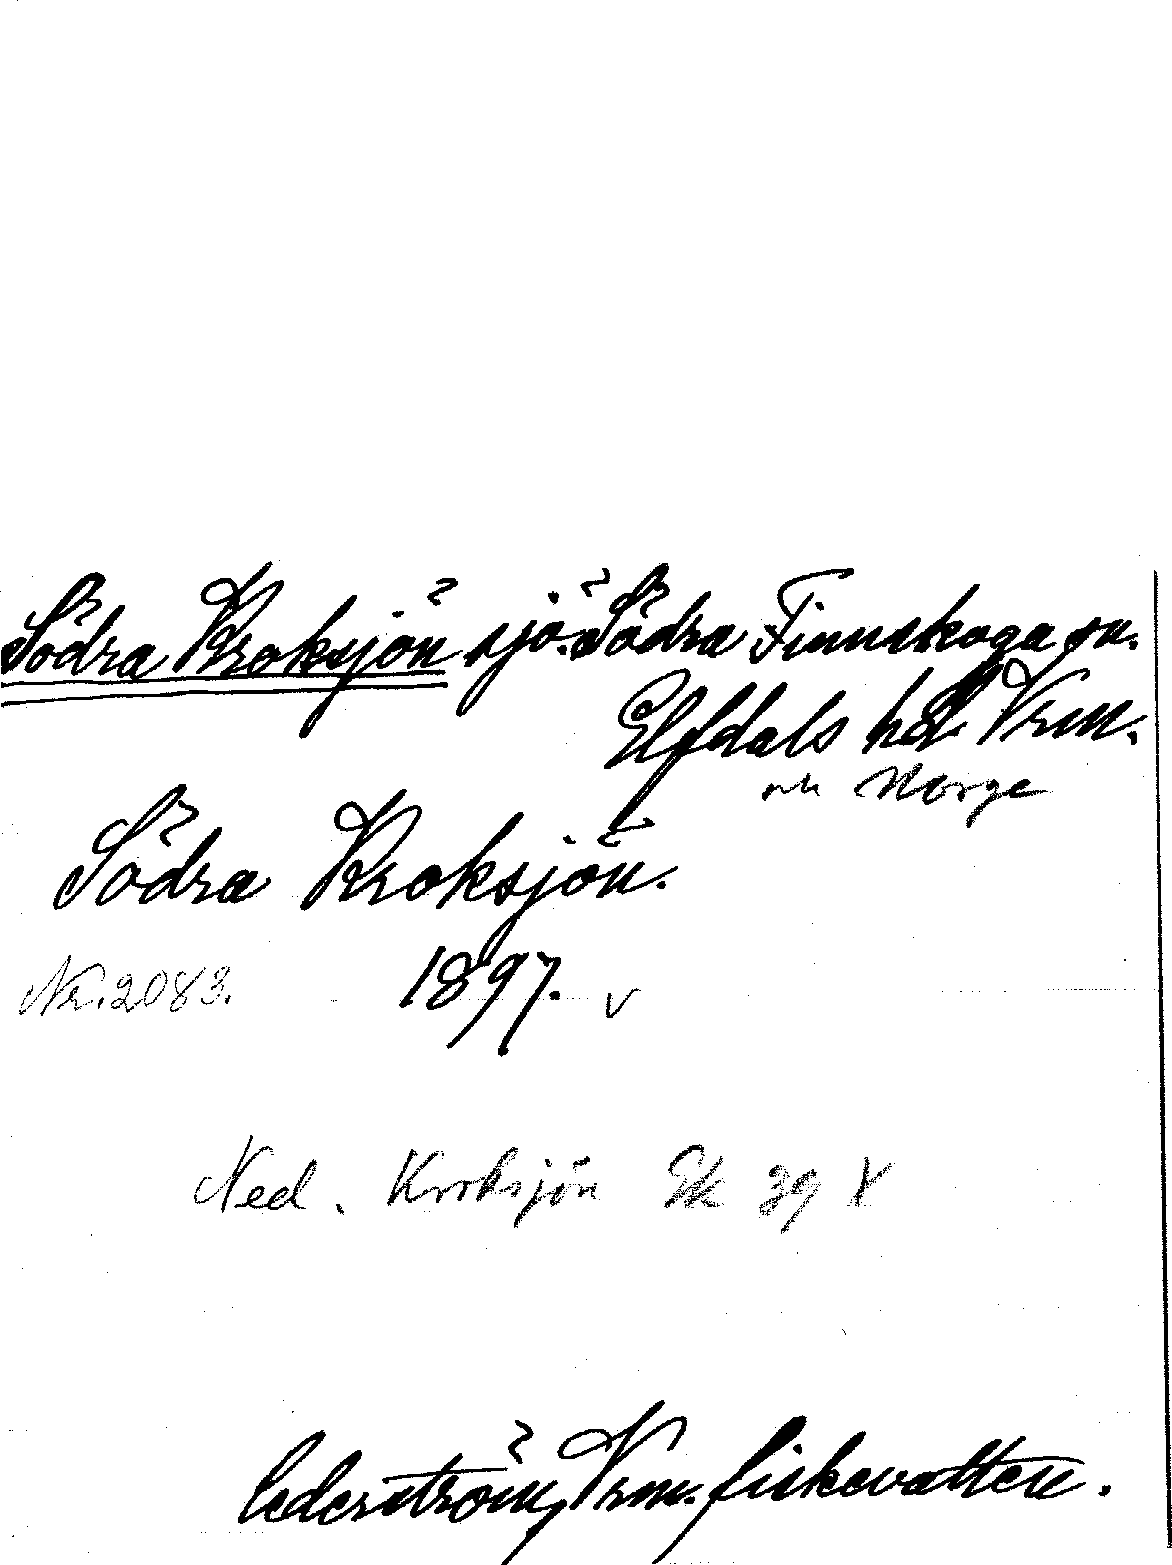 Södra Kroksjön sjö. Södra Finnskoga sn.
Elfdals hd. Vrm.
och Norge
Södra Kroksjön.
Nr. 2083. 1897. v
Ned. Kroksjön Ek 39 V
Cederström, Vrm. fiskevatten.